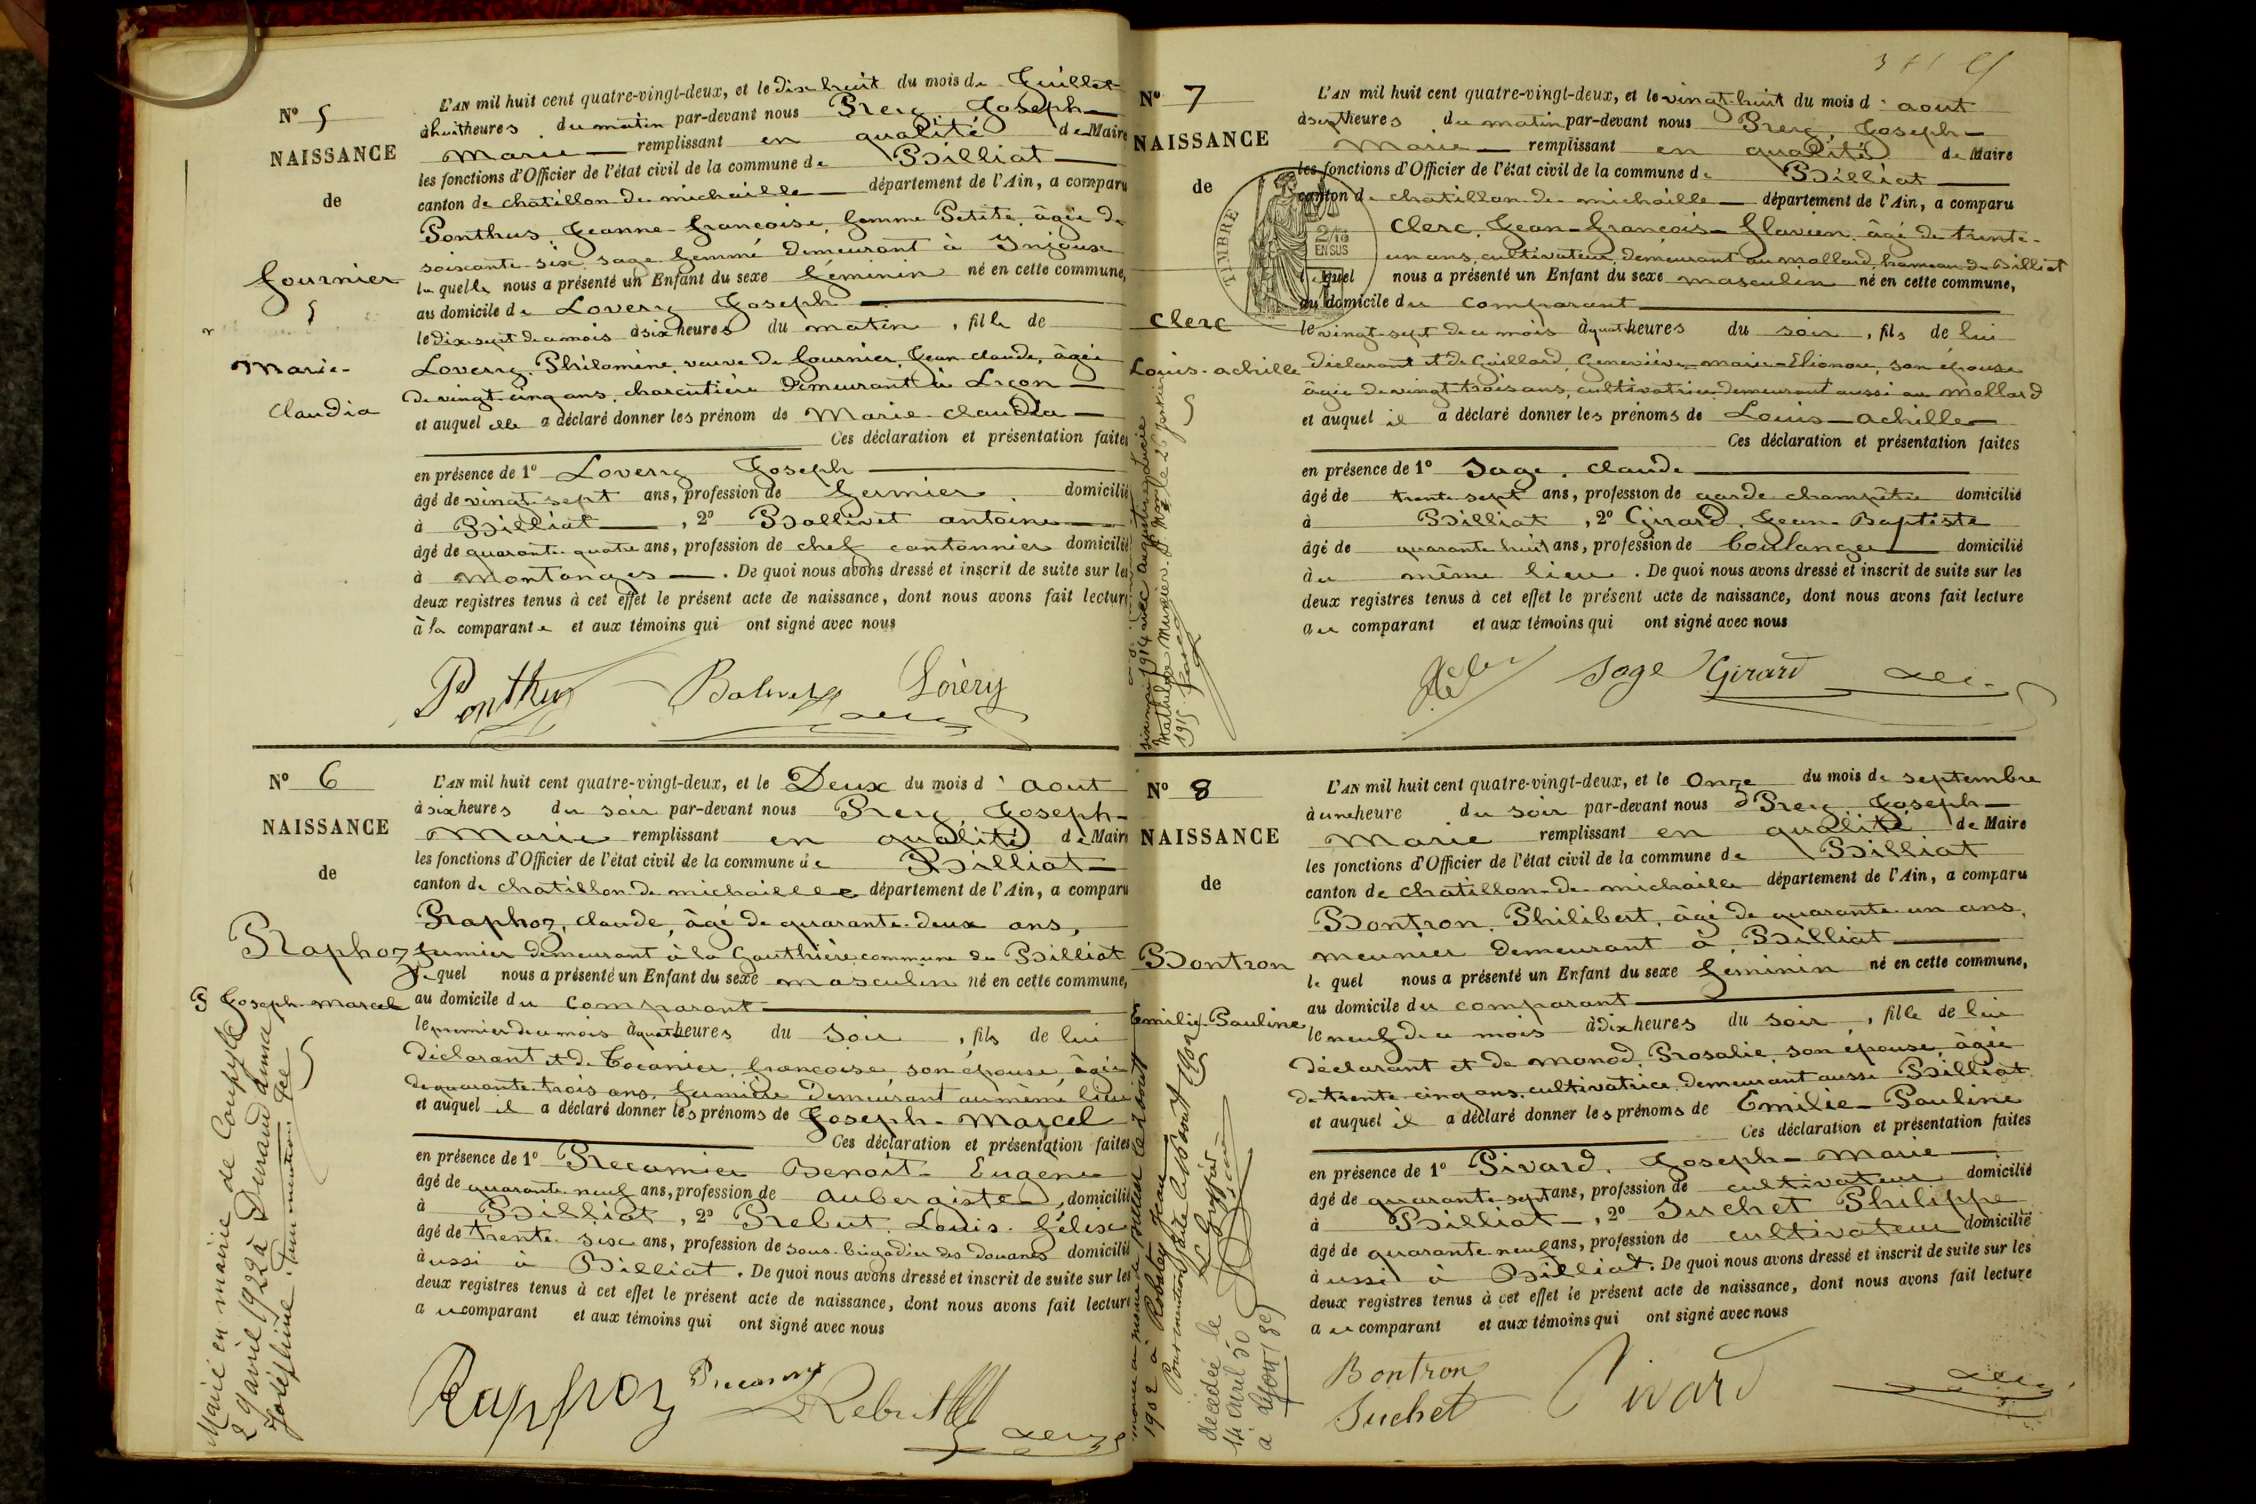 N° 5
NAISSANCE
de
Fournier
Marie-
Claudia
L'AN mil huit cent quatre-vingt-deux, et le dix huit du mois de Juillet
à huit heures du matin par-devant nous Rey, Joseph-
Marie remplissant en qualité de Maire
les fonctions d'Officier de l'état civil de la commune de Billiat
canton de chatillon-de-michaille département de l'Ain, a comparu
Ponthus Jeanne-françoise, femme Petite, âgée de
soixante-six, sage-femme demeurant à Injoux
la quelle nous a présenté un Enfant du sexe féminin né en cette commune,
au domicile de Lovery Joseph
le dix-sept de ce mois à six heures du matin, fille de
Lovery, Philomène, veuve de fournier, Jean-claude, âgée
de vingt-cinq ans, charcutière demeurant à Lyon
et auquel elle a déclaré donner les prénom de Marie-Claudia
Ces déclaration et présentation faites
en présence de 1° Lovery Joseph
âgé de vingt-sept ans, profession de fermier domicilié
à Billiat, 2° Ballivet antoine
âgé de quarante-quatre ans, profession de chef cantonnier domicilié
à montanges. De quoi nous avons dressé et inscrit de suite sur les
deux registres tenus à cet effet le présent acte de naissance, dont nous avons fait lecture
à la comparante et aux témoins qui ont signé avec nous
Ponthus Lovery
N° 6
NAISSANCE
de
Raphoz
Joseph-marcel
Marié en mairie de Coupy le
29 avril 1922 à Durand Anna
Joséphine. Pour mention.
L'AN mil huit cent quatre-vingt-deux, et le Deux du mois d'aout
à six heures du soir par-devant nous Rey, Joseph-
Marie remplissant en qualité de Maire
les fonctions d'Officier de l'état civil de la commune de Billiat
canton de chatillon-de-michaille département de l'Ain, a comparu
Raphoz, claude, âgé de quarante-deux ans,
fermier demeurant à la Gauthière commune de Billiat
le quel nous a présenté un Enfant du sexe masculin né en cette commune,
au domicile du comparant
le premier de ce mois à quatre heures du soir, fils de lui
déclarant et de Tocanier, françoise son épouse âgée
de quarante-trois ans, fermière demeurant au même lieu
et auquel il a déclaré donner les prénoms de Joseph-Marcel
Ces déclaration et présentation faites
en présence de 1° Recamier Benoit-Eugène
âgé de quarante-neuf ans, profession de aubergiste, domicilié
à Billiat, 2° Rebut Louis-félix
âgé de trente-six ans, profession de sous-brigadier des douanes domicilié
aussi à Billiat. De quoi nous avons dressé et inscrit de suite sur les
deux registres tenus à cet effet le présent acte de naissance, dont nous avons fait lecture
au comparant et aux témoins qui ont signé avec nous
Raphoz
N° 7
NAISSANCE
de
Clerc
Louis-achille
TIMBRE
2/10
EN SUS
L'AN mil huit cent quatre-vingt-deux, et le vingt-huit du mois d'aout
à sept heures du matin par-devant nous Rey, Joseph-
Marie remplissant en qualité de Maire
les fonctions d'Officier de l'état civil de la commune de Billiat
canton de chatillon-de-michaille département de l'Ain, a comparu
Clerc, Jean-françois-flavien, âgé de trente-
un ans, cultivateur, demeurant au mollard, hameau de Billiat
le quel nous a présenté un Enfant du sexe masculin né en cette commune,
au domicile du comparant
le vingt-sept de ce mois à quatre heures du soir, fils de lui
déclarant et de Guillard, Geneviève-marie-Elionore, son épouse
âgée de vingt-trois ans, cultivatrice demeurant aussi au mollard
et auquel il a déclaré donner les prénoms de Louis-achille
Ces déclaration et présentation faites
en présence de 1° Sage, claude
âgé de trente-sept ans, profession de garde champêtre domicilié
à Billiat, 2° Girard, Jean-Baptiste
âgé de quarante-huit ans, profession de boulanger domicilié
au même lieu. De quoi nous avons dressé et inscrit de suite sur les
deux registres tenus à cet effet le présent acte de naissance, dont nous avons fait lecture
au comparant et aux témoins qui ont signé avec nous
Sage Girard
N° 8
NAISSANCE
de
Bontron
Emilie-Pauline
Décédée le
14 avril 50
à Lyon
L'AN mil huit cent quatre-vingt-deux, et le Onze du mois de septembre
à une heure du soir par-devant nous Rey, Joseph-
Marie remplissant en qualité de Maire
les fonctions d'Officier de l'état civil de la commune de Billiat
canton de chatillon-de-michaille département de l'Ain, a comparu
Bontron, Philibert, âgé de quarante-un ans,
meunier demeurant à Billiat
le quel nous a présenté un Enfant du sexe féminin né en cette commune,
au domicile du comparant
le neuf de ce mois à dix heures du soir, fille de lui
déclarant et de monod, Rosalie, son épouse âgée
de trente-cinq ans, cultivatrice demeurant aussi Billiat
et auquel il a déclaré donner les prénoms de Emilie-Pauline
Ces déclaration et présentation faites
en présence de 1° Pivard, Joseph-Marie
âgé de quarante-sept ans, profession de cultivateur domicilié
à Billiat, 2° Suchet Philippe
âgé de quarante-neuf ans, profession de cultivateur domicilié
aussi à Billiat. De quoi nous avons dressé et inscrit de suite sur les
deux registres tenus à cet effet le présent acte de naissance, dont nous avons fait lecture
au comparant et aux témoins qui ont signé avec nous
Bontron Pivard
Suchet